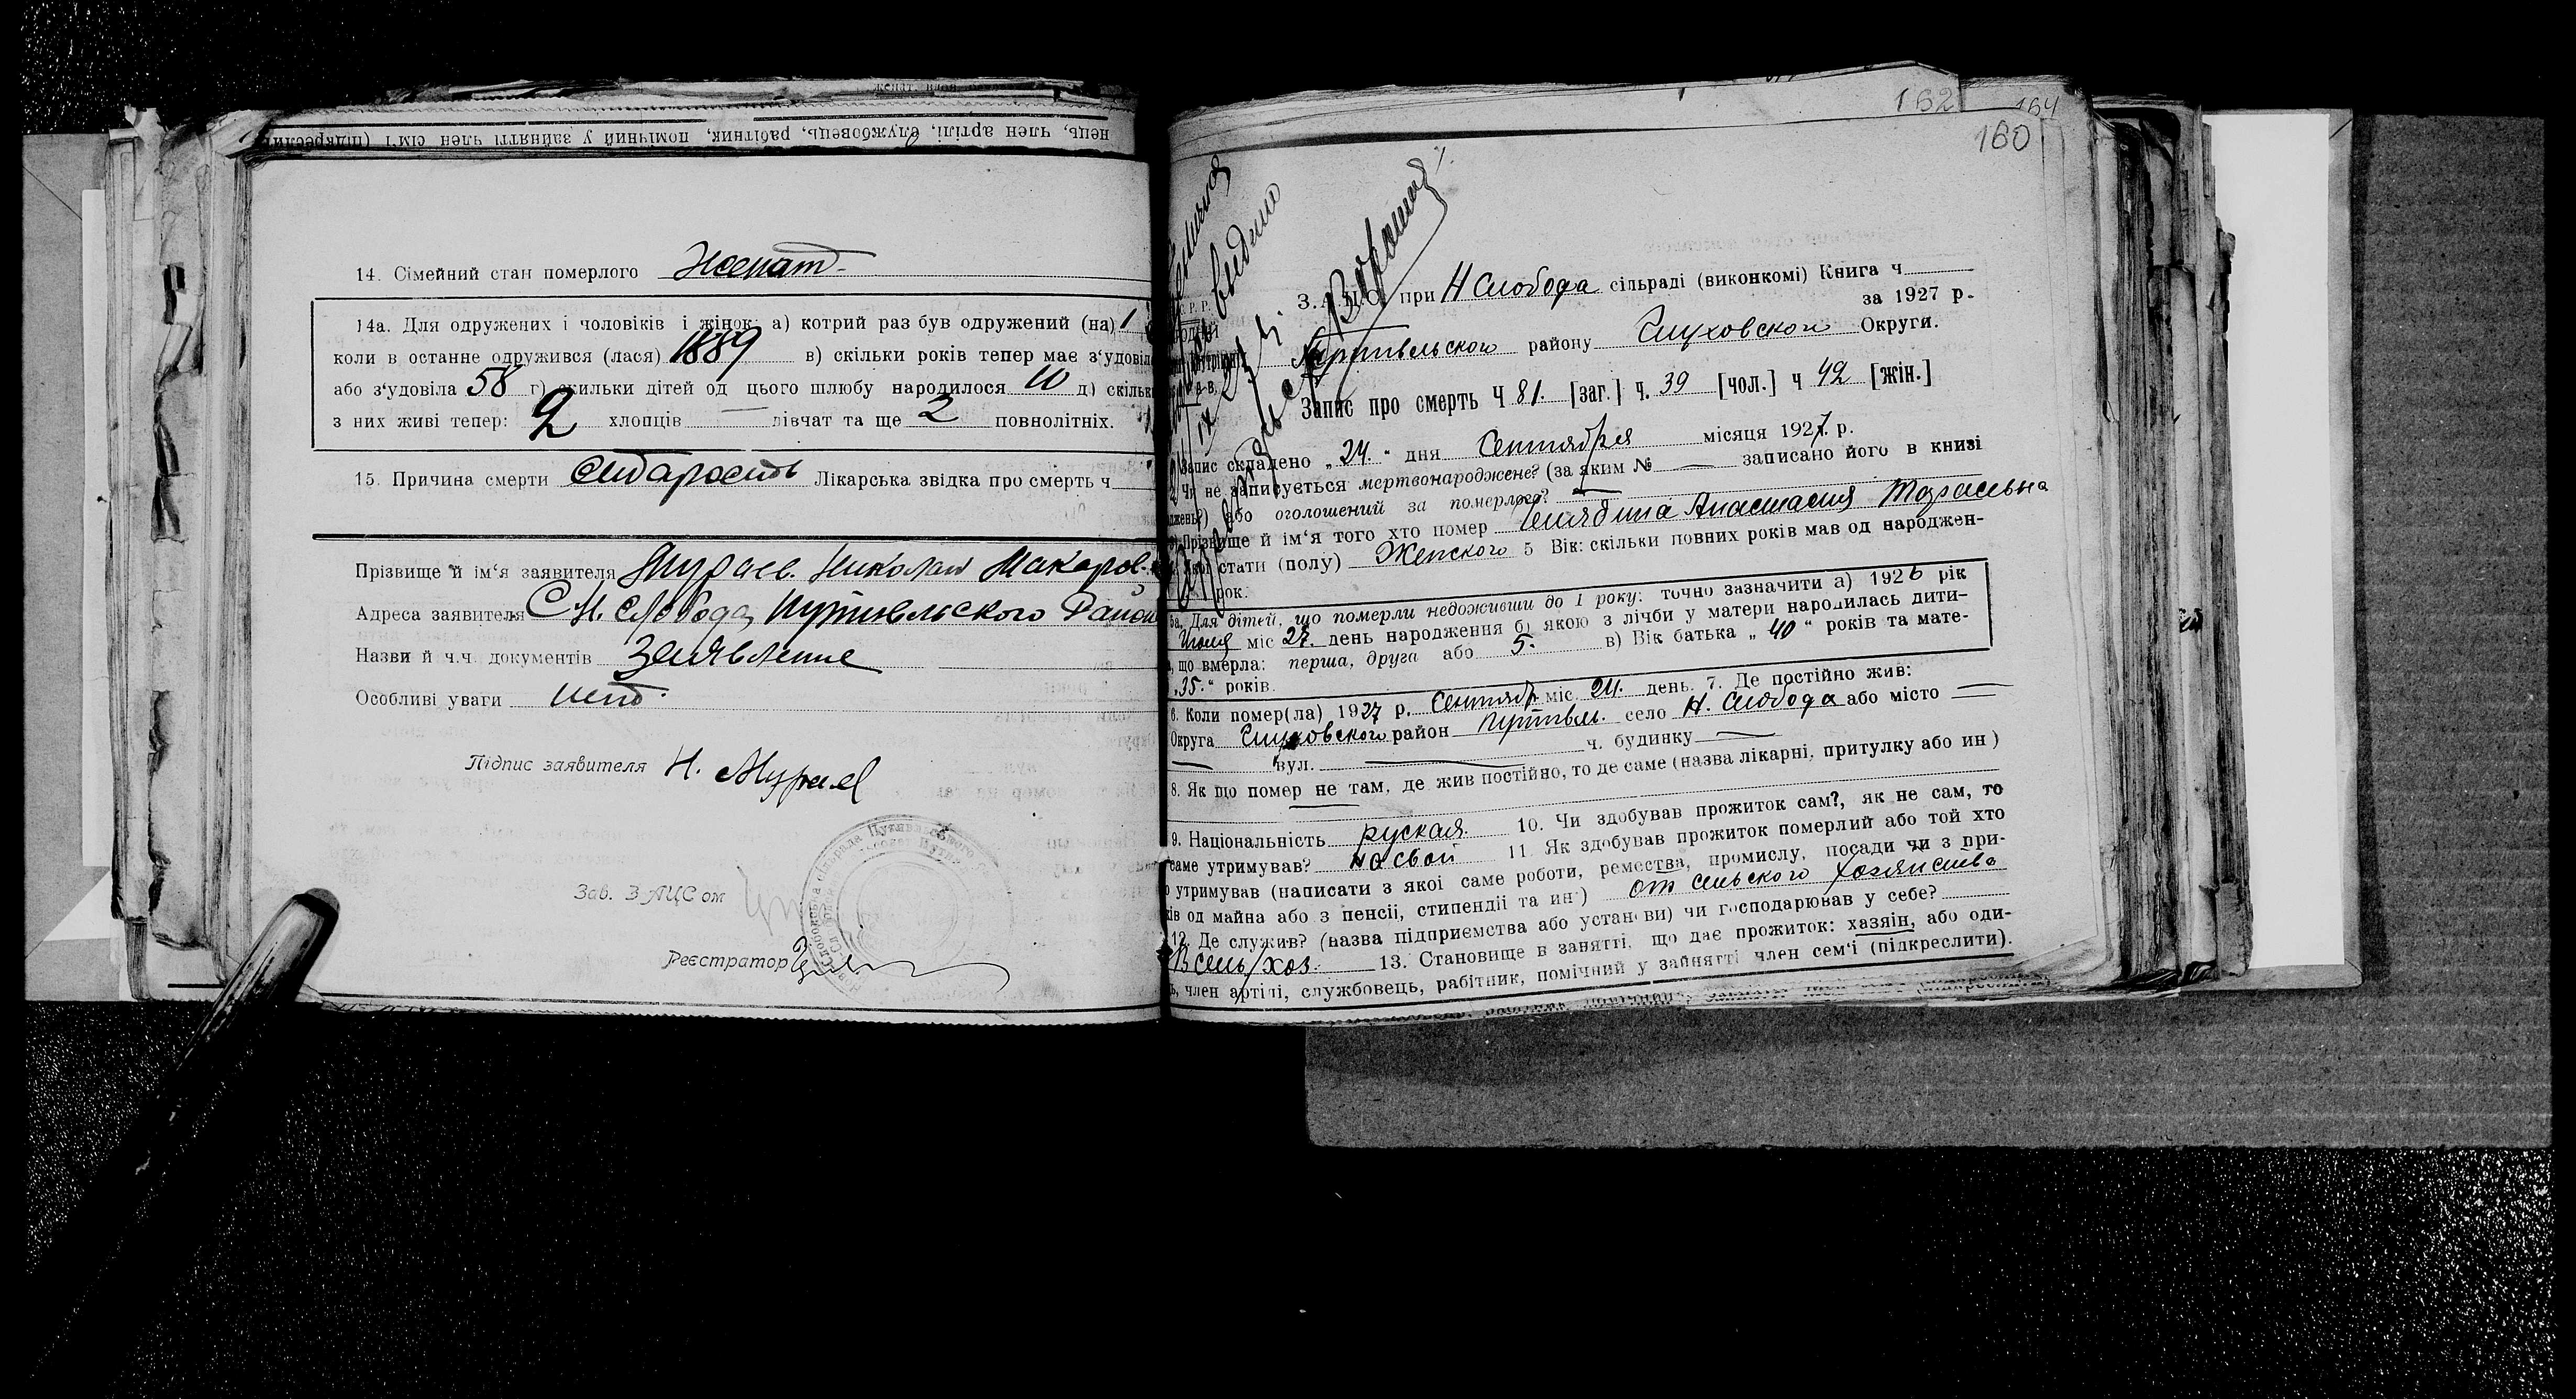 нець, член артілі, службовець, робітник, помічний у зайнятті член сім'ї (підкреслити
14. Сімейний стан померлого Женат
14а. Для одружених і чоловіків і жінок: а) котрий раз був одружений (на) 1
коли в останне одружився (лася) 1889 в) скільки років тепер має з'удовіла
або з'удовіла 58 г) скильки дітей од цього шлюбу народилося 10 д) скільк
з них живі тепер: 2 хлопців — дівчат та ще 2 повнолітніх.
15. Причина смерти Старость Лікарська звідка про смерть ч
Прізвище й ім'я заявителя Мураев Николай Макаров.
Адреса заявителя С Н. Слобода Путивльского Район
Назви й ч.ч. документів Заявление
Особливі уваги нет.
Підпис заявителя Н. Мураев
Зав. ЗАЦСом
Реєстратор
162 164
160
З.А.Ц.С. при Н Слобода сільраді (виконкомі) Книга ч
за 1927 р.
Путивльском району Глуховской Округи.
Запис про смерть Ч 81. [заг.] ч. 39 [чол.] ч 42 [жін.]
Запис складено „24." дня Сентября місяця 1927. р.
2. Чи не записується мертвонароджене? (за яким № — записано його в книзі
джень?) або оголошений за померлого? —
Прізвище й ім'я того хто помер Анастасия Тарасевна
стати (полу) Женского 5 Вік: скільки повних років мав од народжен-
рок.
5а. Для дітей, що померли недоживши до 1 року: точно зазначити а) 1926 рік
Июля міс 27. день народження б) якою з лічби у матери народилась дити-
, що вмерла: перша, друга або 5. в) Вік батька „40" років та мате-
„35." років.
6. Коли помер(ла) 1927 р. Сентябр міс. 24. день. 7. Де постійно жив:
Округа Глуховского район Путивл. село Н. Слобода або місто —
— вул. — ч. будинку —
8. Як що помер не там, де жив постійно, то де саме (назва лікарні, притулку або ин)
9. Національність руская. 10. Чи здобував прожиток сам?, як не сам, то
саме утримував? 11. Як здобував прожиток померлий або той хто
утримував (написати з якої саме роботи, ремества, промислу, посади чи з при-
ків од майна або з пенсії, стипендії та ин·) от сельского хозяйства
12. Де служив? (назва підприємства або установи) чи господарював у себе?
В сель/хоз. 13. Становище в занятті, що дає прожиток: хазяін, або оди-
ь, член артілі, службовець, рабітник, помічний у зайнятті член сем'ї (підкреслити).